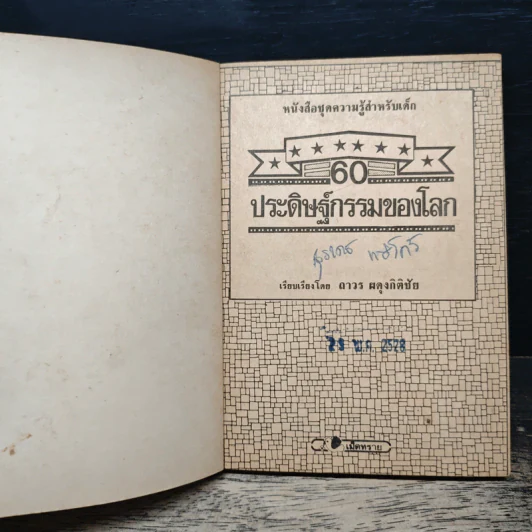 หนังสือชุดความรู้สำหรับเด็ก
60
ประดิษฐ์กรรมของโลก
เรียบเรียงโดย ถาวร ผดุงกิติชัย
พ.ค. 2528
เม็ดทราย